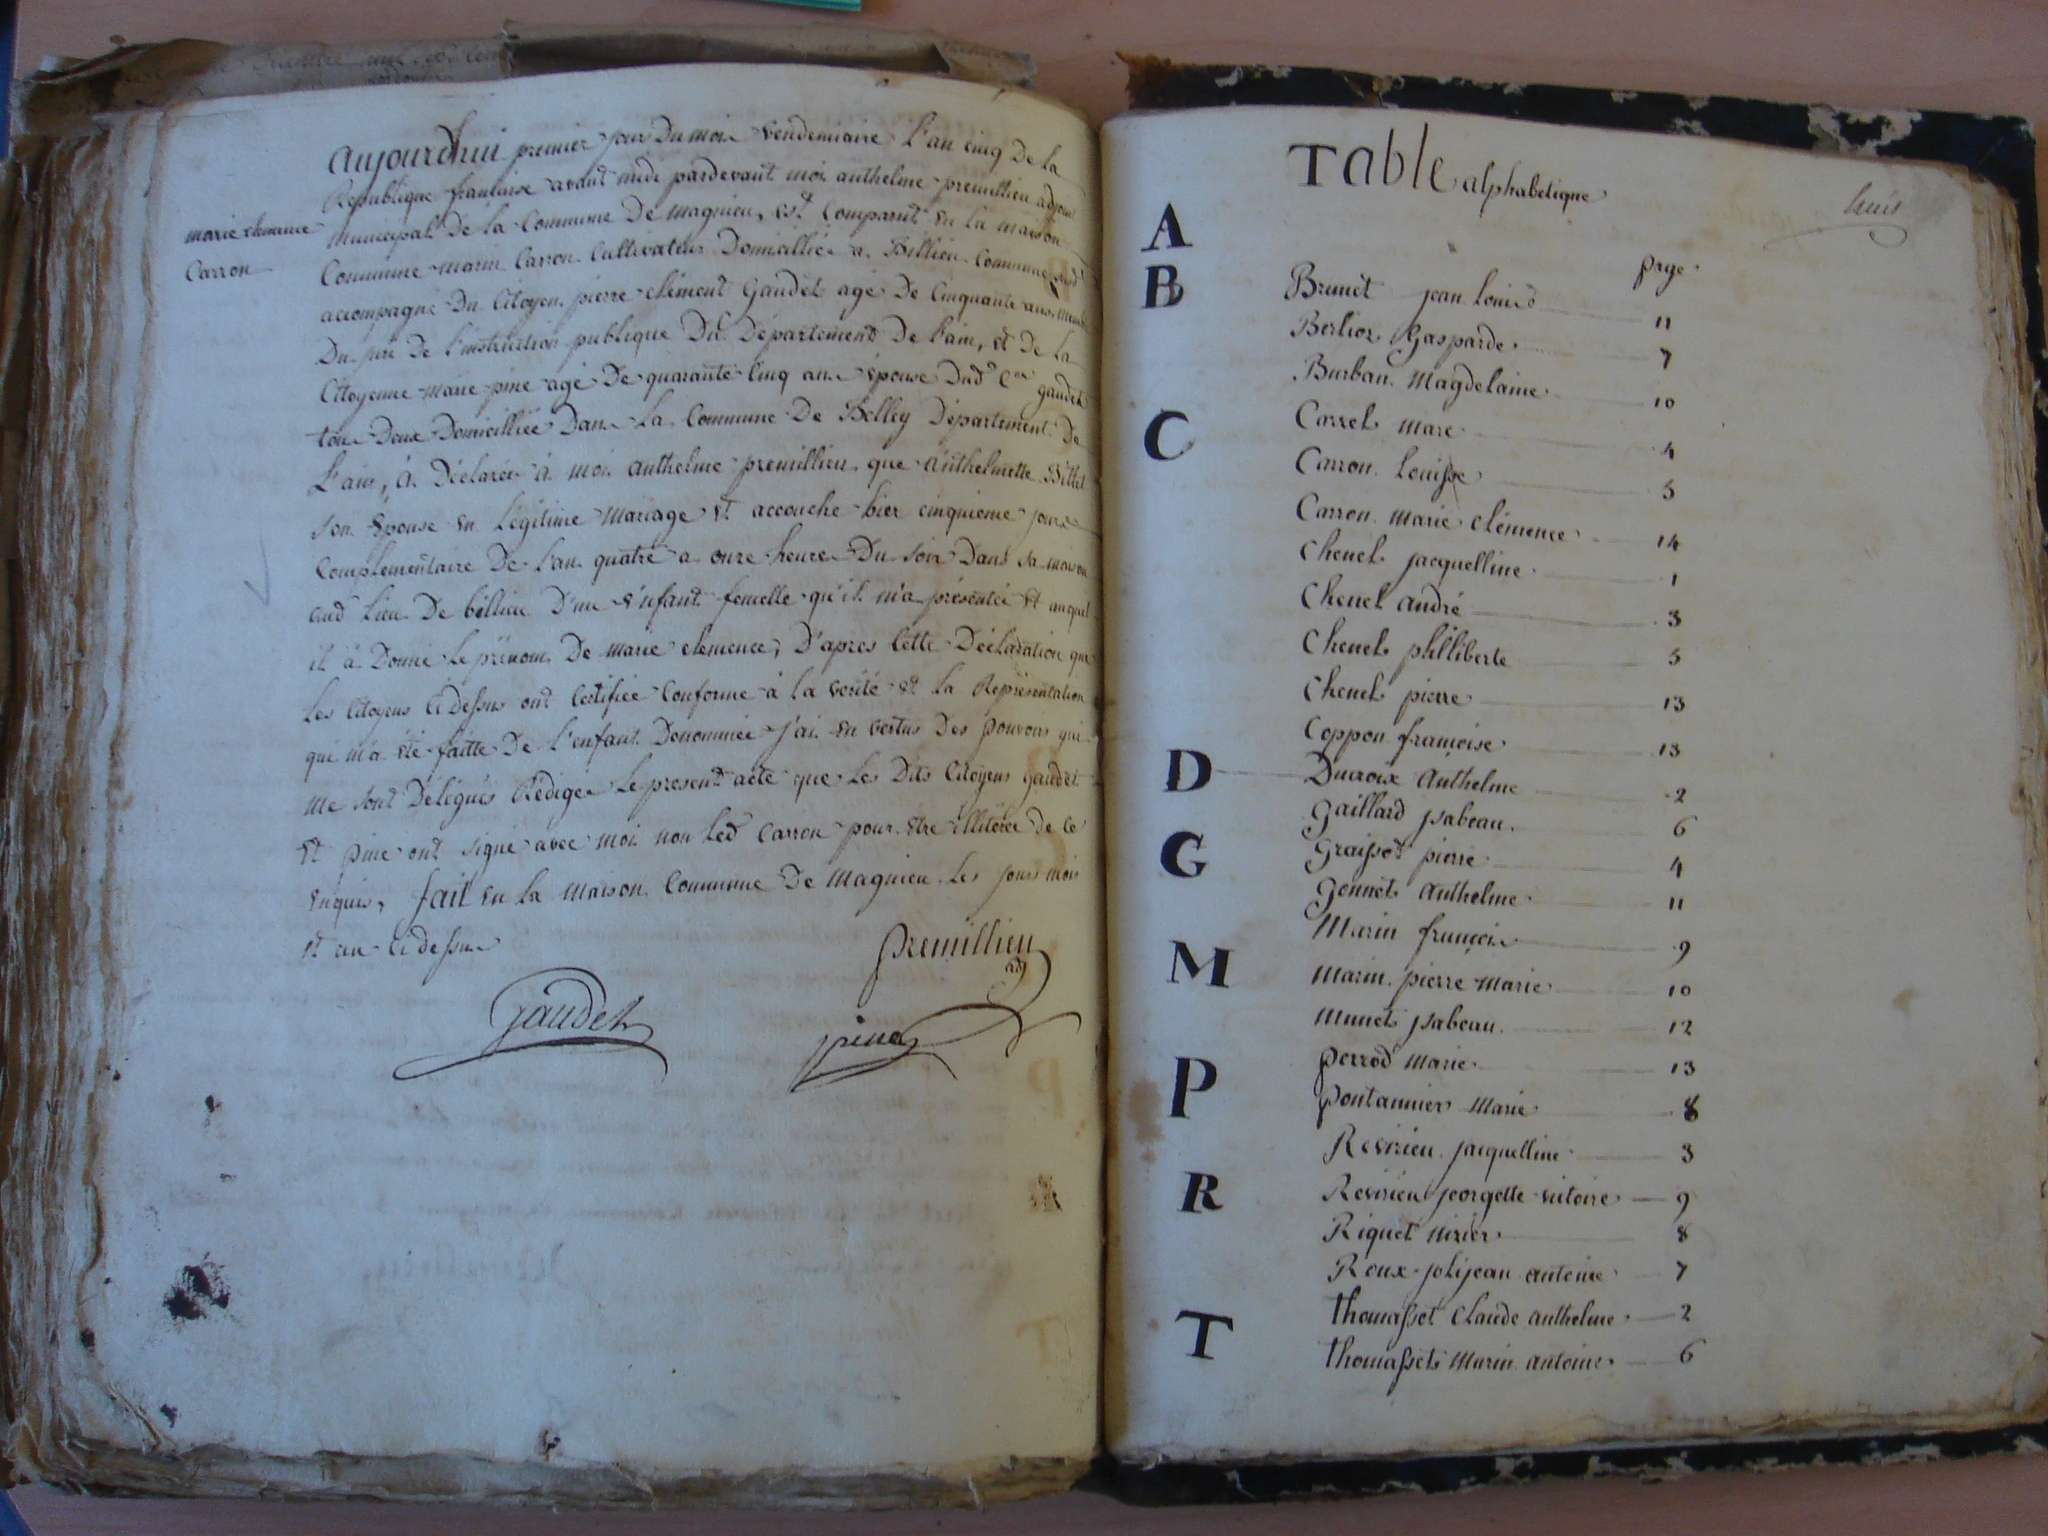 marie clemence
Carron
Aujourdhui premier jour du mois vendemiaire L'an cinq De la
Republique francaise avant midi pardevant moi anthelme premillieu adjoint
municipal De la Commune De magnieu, est comparut en la maison
Commune marin Carron Cultivateur Domicillié a Billieu Commune
accompagné Du Citoyen pierre clément Gaudet agé De Cinquante ans
Du juri De l'instruction publique Du Département De l'ain, et De la
Citoyenne marie pine agé De quarante cinq ans épouse Dud. Cen gaudet
tous Deux Domicilliée Dans La Commune De Belley Département De
L'ain, à Déclarée à moi anthelme premillieu que anthelmette Billet
Son Epouse en Légitime Mariage et accouché hier cinquieme jour
Complementaire De L'an quatre a onze heure Du soir Dans sa maison
aud Lieu De béllieu D'un enfant femelle qu'il m'a présentée et auquel
il à Donné Le prénom De marie clemence, D'apres Cette Déclaration que
Les Citoyens CiDessus ont Certifiée Conforme à La verité et La Représentation
qui m'a été faitte De L'enfant Denommée j'ai en vertus Des pouvoirs qui
me sont Délégués Rédigée Le present acte que Les Dits Citoyens gaudet
Et pine ont signé avec moi non Led Carron pour etre illiterée de ce
enquis, fait en La maison Commune De magnieu Les jour mois
et an ci dessus
premillieu
adj
Gaudet pine
Table alphabetique
A
page
B Brunet jean Louis 11
Berlioz Gasparde 7
Burban Magdelaine 10
C Carrel marc 4
Carron Louise 5
Carron marie clémence 14
Chenel jacquelline 1
Chenel andré 3
Chenel philliberte 5
Chenel pierre 13
Coppon francoise 13
D Ducroix Anthelme 2
Gaillard ysabeau 6
G Graissot pierre 4
Gonnet Anthelme 11
Marin françois 9
M Marin pierre marie 10
Munet ysabeau 12
P perrod marie 13
pontannier Marie 8
Revirieu jacquelline 3
R Revirieu jeorgette vitoire 9
Riquet nizier 8
Roux-jolijean antoine 7
T thomasset Claude anthelme 2
thomasset Marin antoine 6